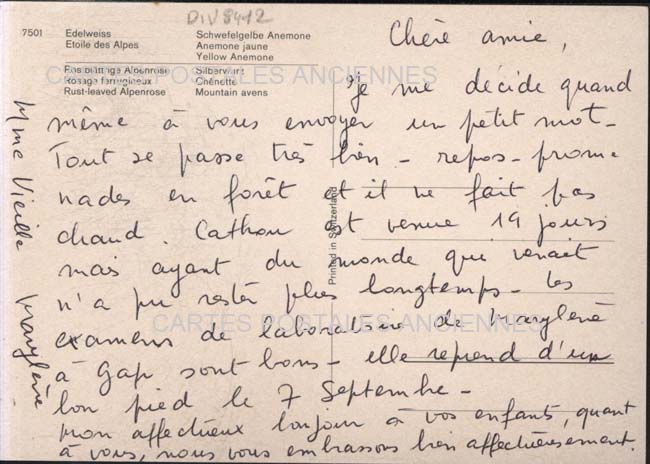 DIV8412
7501
Edelweiss
Etoile des Alpes
Schwefelgelbe Anemone
Anemone jaune
Yellow Anemone
Rostblättrige Alpenrose
Rosage ferrugineux
Rust-leaved Alpenrose
Silberwurz
Chênette
Mountain avens
CARTES POSTALES ANCIENNES
Chère amie,
Je me décide quand
même à vous envoyer un petit mot-
Tout se passe très bien - repos - prome
nades en forêt et il ne fait pas
chaud. Cathou est venue 19 jours
mais ayant du monde que venait
n'a pu rester plus longtemps - Les
examens de laboratoire de Marylène
à Gap sont bons - elle reprend d'un
bon pied le 7 Septembre -
Mon affectueux bonjour à vos enfants, quant
à vous, nous vous embrassons bien affectueusement.
Mme Vieille Marylène
Printed in Switzerland
CARTES POSTALES ANCIENNES